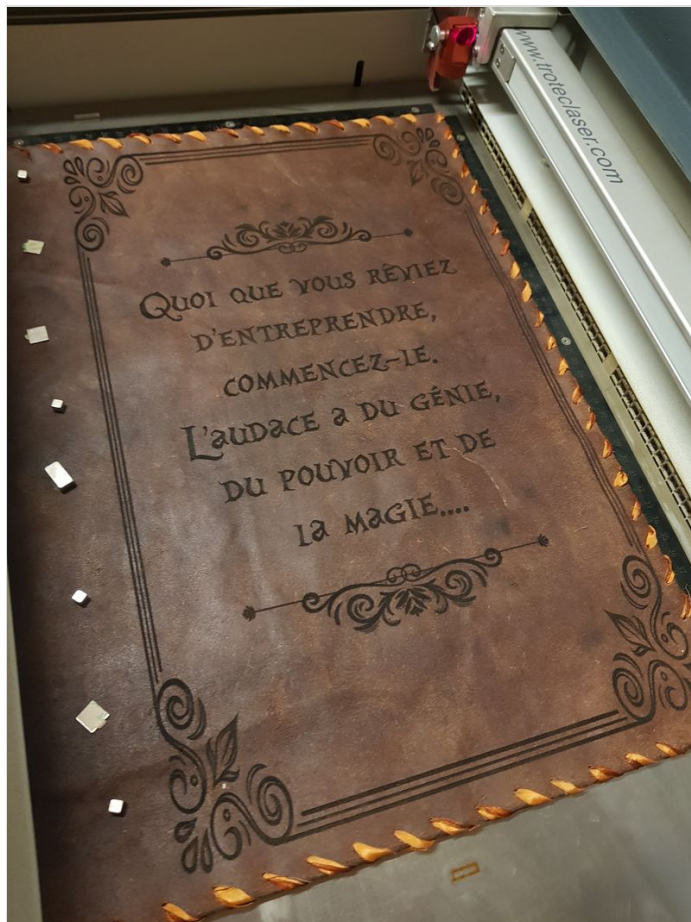 www.troteclaser.com
Quoi que vous rêviez
d'entreprendre,
commencez-le.
L'audace a du génie,
du pouvoir et de
la magie....